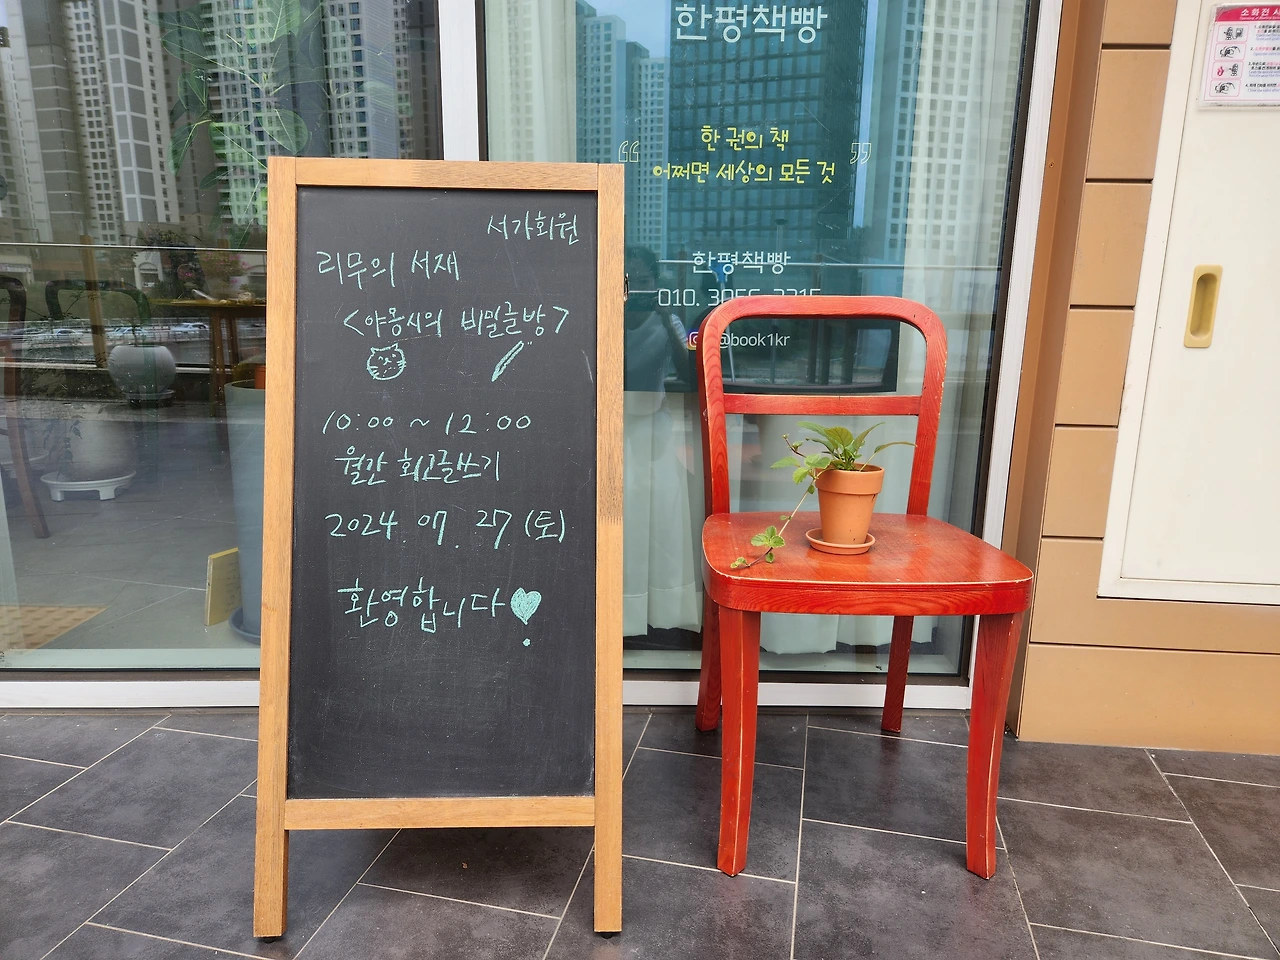 서가회원
리무의 서재
<야몽시의 비밀글방>
10:00 ~ 12:00
월간 회고글쓰기
2024. 07. 27 (토)
환영합니다
한평책빵
“ 한 권의 책
어쩌면 세상의 모든 것 ”
한평책빵
010.
@book1kr